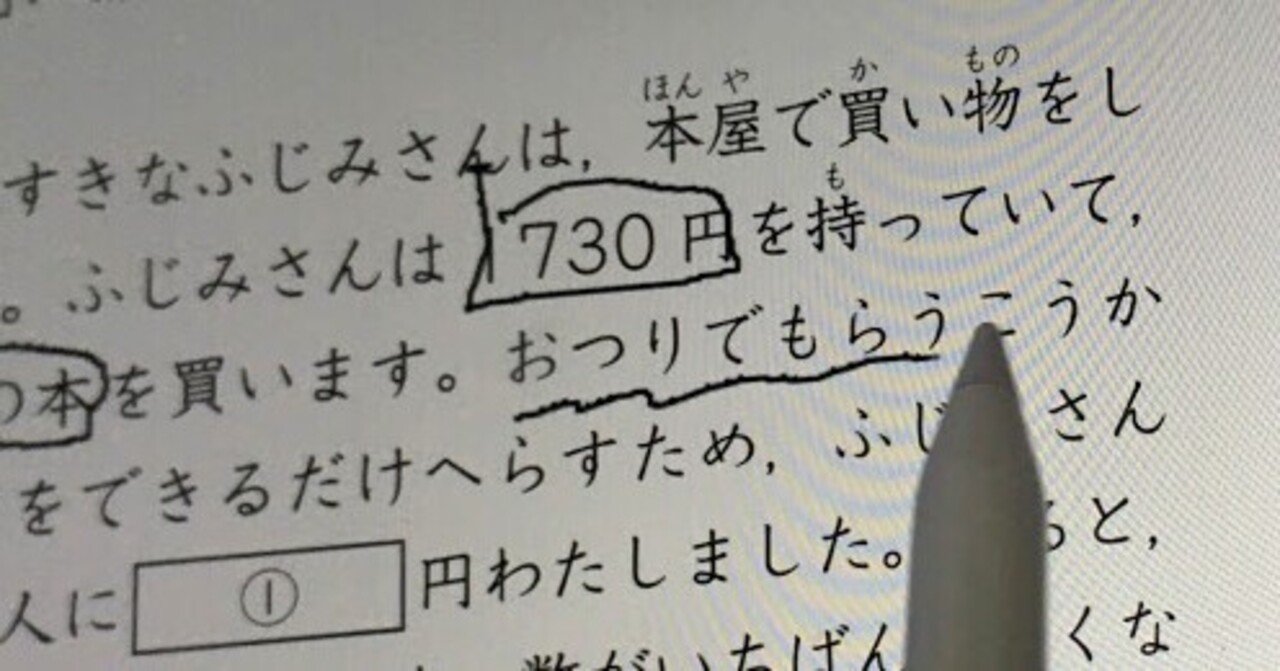 ほんや か もの
すきなふじみさんは，本屋で買い物をし
も
。ふじみさんは 1730円を持っていて，
本を買います。おつりでもらうこうか
をできるだけへらすため，ふじ さん
人に ① 円わたしました。 と，
数がいちばん くな